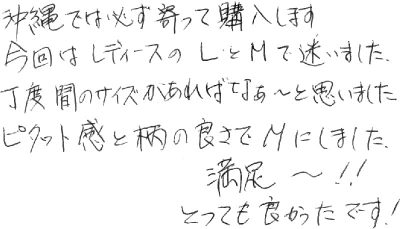 沖縄では必ず寄って購入します
今回はレディースのLとMで迷いました.
丁度間のサイズがあればなぁ〜と思いました
ピタット感と柄の良さでMにしました.
満足〜!!
とっても良かったです!